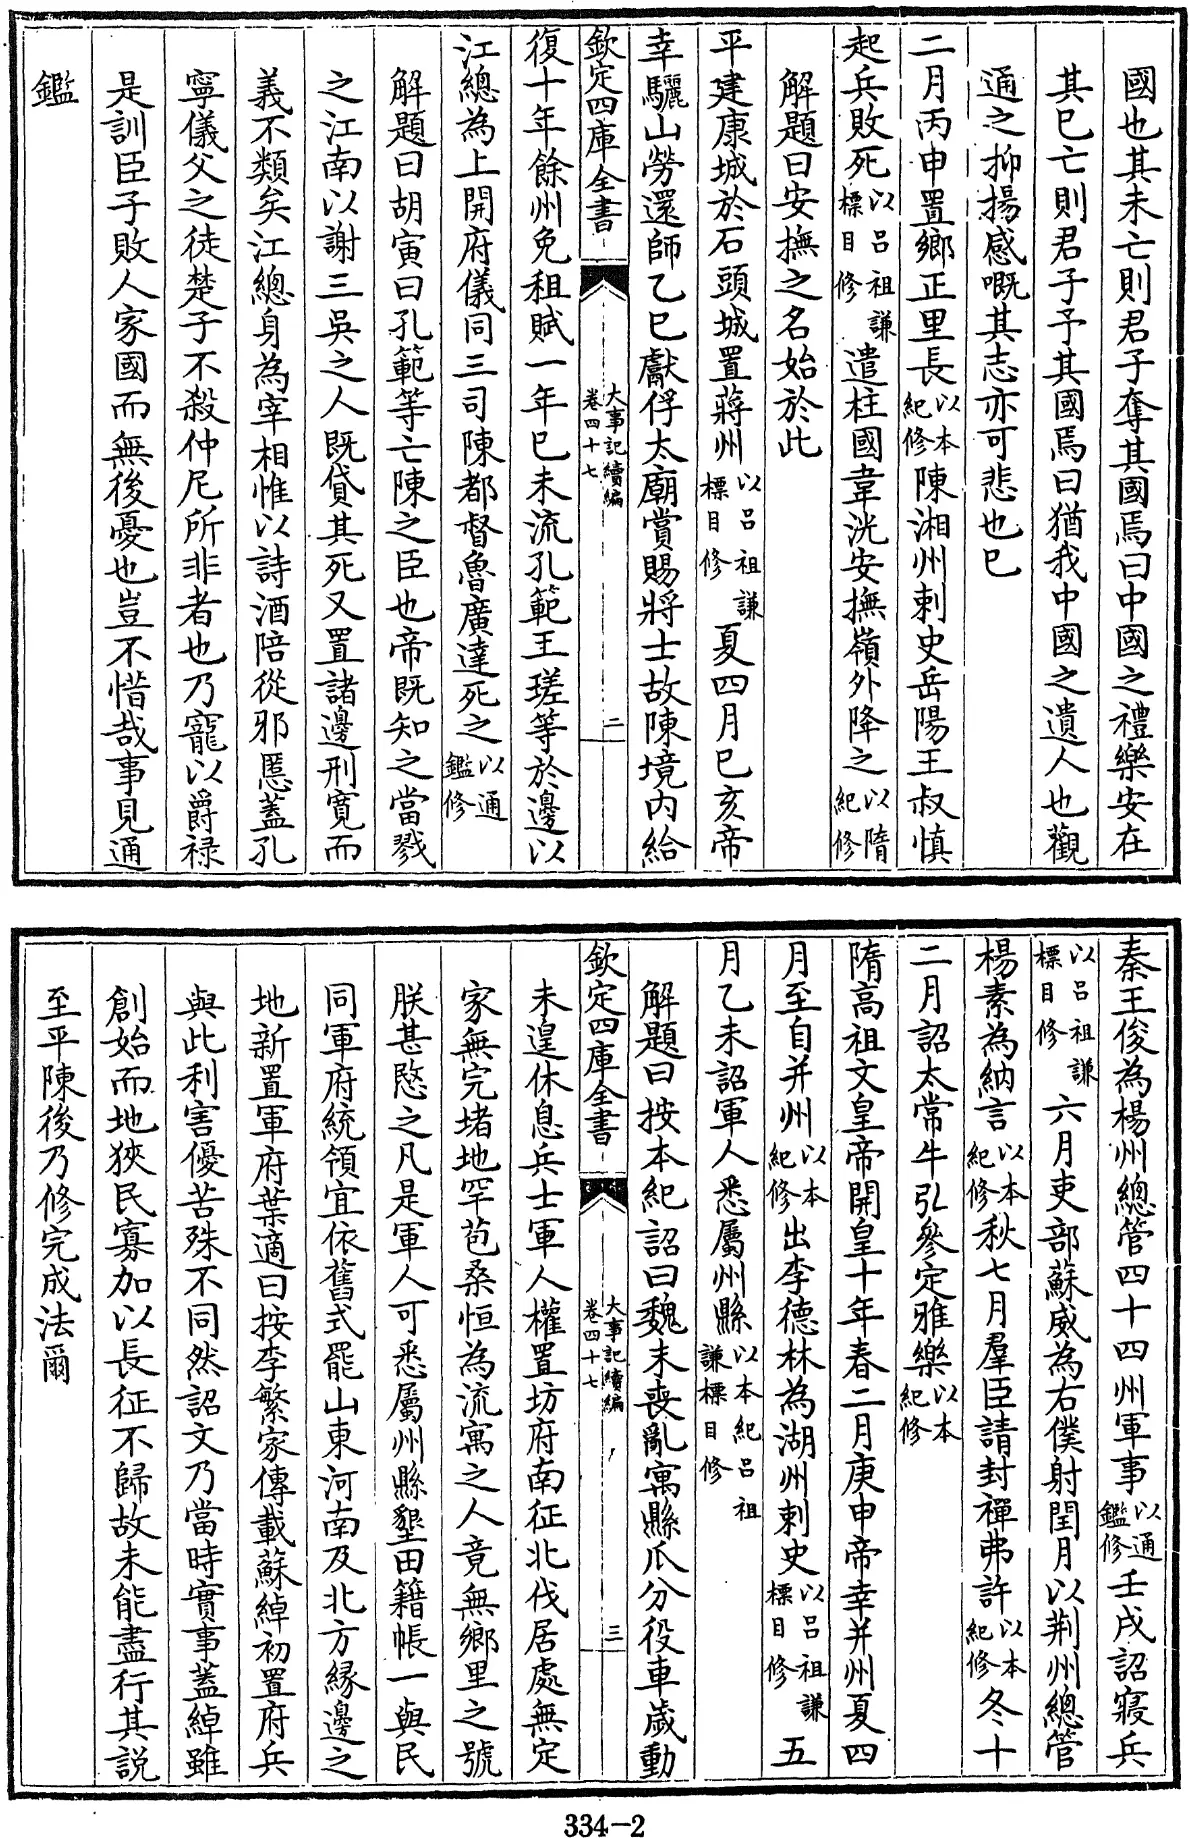 國也其未亡則君子奪其國焉曰中國之禮樂安在
其已亡則君子予其國焉曰猶我中國之遺人也觀
通之抑揚感嘅其志亦可悲也已
二月丙申置鄉正里長以本紀修陳湘州刺史岳陽王叔慎
起兵敗死以呂祖謙標目修遣柱國韋洸安撫嶺外降之以隋紀修
解題曰安撫之名始於此
平建康城於石頭城置蔣州以呂祖謙標目修夏四月已亥帝
幸驪山勞還師乙巳獻俘太廟賞賜將士故陳境内給
欽定四庫全書 大事記續編 卷四十七 二
復十年餘州免租賦一年已未流孔範王瑳等於邊以
江總為上開府儀同三司陳都督魯廣達死之以通鑑修
解題曰胡寅曰孔範等亡陳之臣也帝既知之當戮
之江南以謝三吳之人既貸其死又置諸邊刑寬而
義不類矣江總身為宰相惟以詩酒陪從邪慝蓋孔
寧儀父之徒楚子不殺仲尼所非者也乃寵以爵祿
是訓臣子敗人家國而無後憂也豈不惜哉事見通
鑑
秦王俊為楊州總管四十四州軍事以通鑑修壬戌詔寢兵
以呂祖謙標目修六月吏部蘇威為右僕射閏月以荆州總管
楊素為納言以本紀修秋七月羣臣請封禪弗許以本紀修冬十
二月詔太常牛弘參定雅樂以本紀修
隋高祖文皇帝開皇十年春二月庚申帝幸并州夏四
月至自并州以本紀修出李德林為湖州刺史以呂祖謙標目修五
月乙未詔軍人悉屬州縣以本紀呂祖謙標目修
解題曰按本紀詔曰魏末喪亂寓縣爪分役車歲動
欽定四庫全書 大事記續編 卷四十七 三
未遑休息兵士軍人權置坊府南征北伐居處無定
家無完堵地罕苞桑恒為流寓之人竟無鄉里之號
朕甚愍之凡是軍人可悉屬州縣墾田籍帳一與民
同軍府統領宜依舊式罷山東河南及北方緣邊之
地新置軍府葉適曰按李繁家傳載蘇綽初置府兵
與此利害優苦殊不同然詔文乃當時實事蓋綽雖
創始而地狹民寡加以長征不歸故未能盡行其說
至平陳後乃修完成法爾
334-2